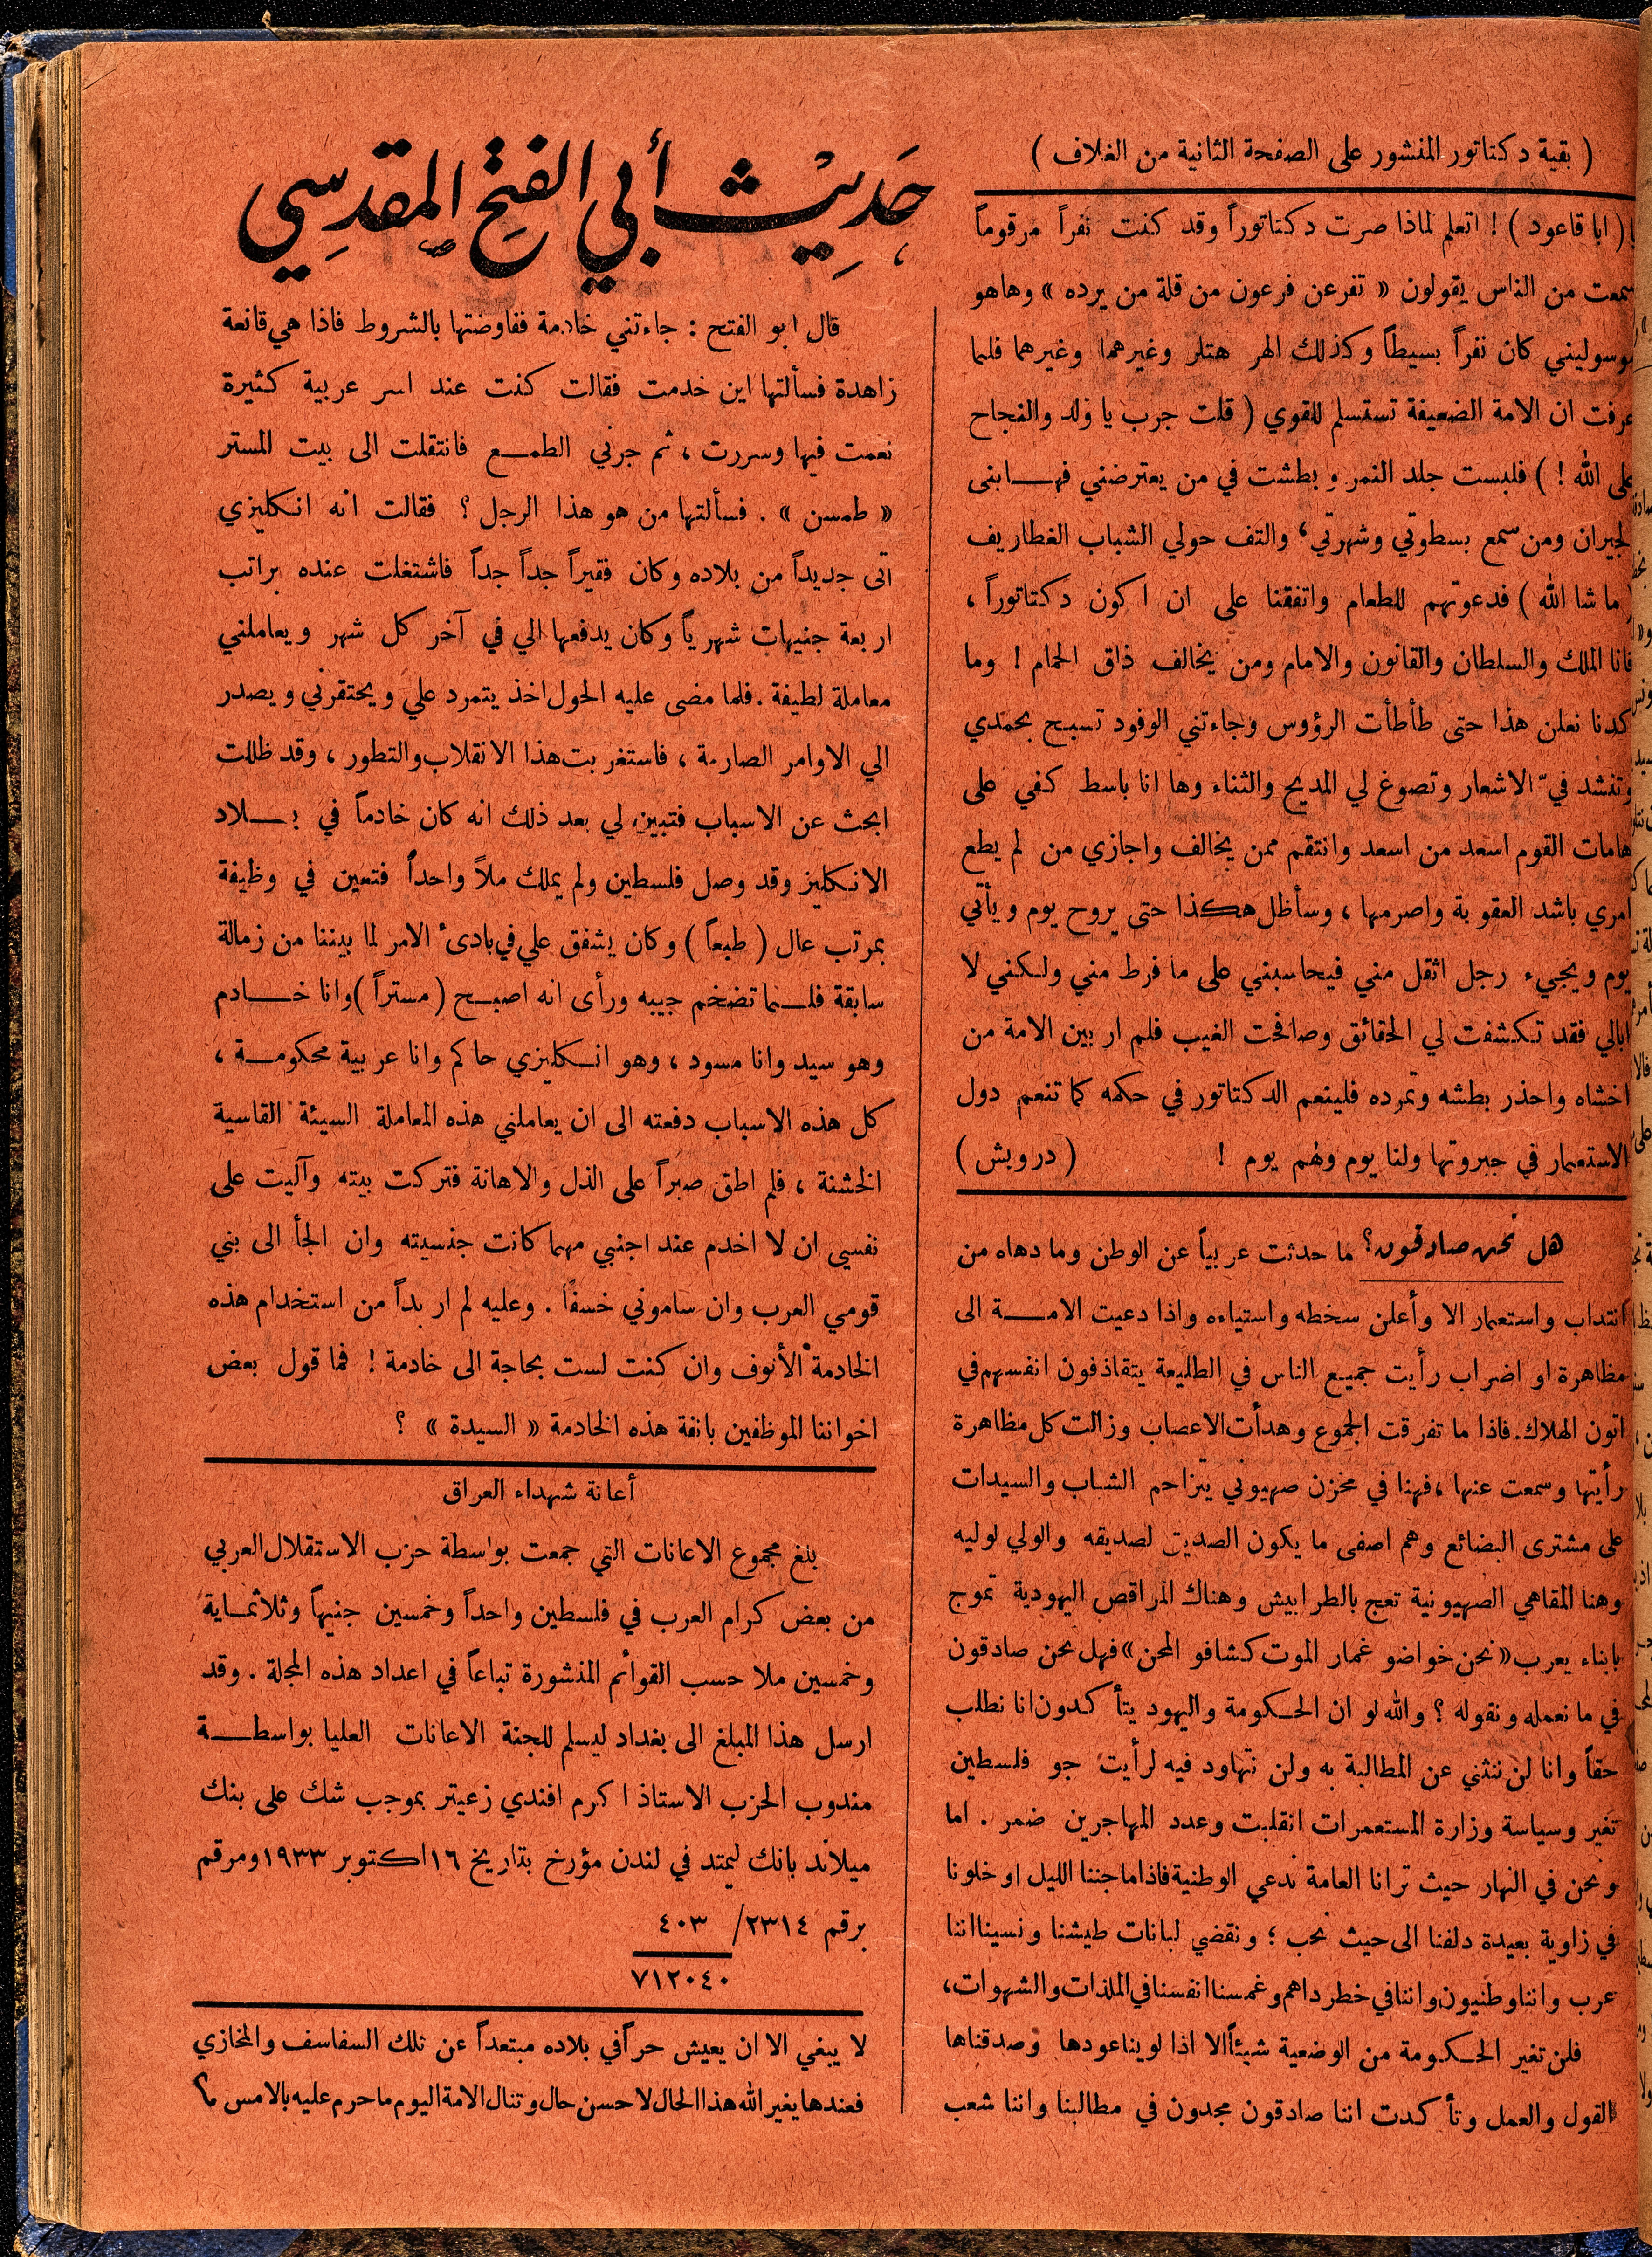 ( بقية دكتاتور المنشور على الصفحة الثانية من الغلاف )
( ابا قاعود ) ! اتعلم لماذا صرت دكتاتوراً وقد كنت نفراً مرقوماً
سمعت من الناس يقولون « تفرعن فرعون من قلة من يرده » وهاهو
موسوليني كان نفراً بسيطاً وكذلك الهر هتلر وغيرهما وغيرهما فلما
عرفت ان الامة الضعيفة تستسلم للقوي ( قلت جرب يا ولد والنجاح
على الله ! ) فلبست جلد النمر و بطشت في من يعترضني فهـابنى
الجيران ومن سمع بسطوتي وشهرتي، والتف حولي الشباب الغطاريف
( ما شا الله ) فدعوتهم للطعام واتفقنا على ان اكون دكتاتوراً ،
فانا الملك والسلطان والقانون والامام ومن يخالف ذاق الحمام ! وما
كدنا نعلن هذا حتى طأطأت الرؤوس وجاءتني الوفود تسبح بحمدي
وتنشد فيّ الاشعار وتصوغ لي المديح والثناء وها انا باسط كفي على
هامات القوم اسعد من اسعد وانتقم ممن يخالف واجازي من لم يطع
امري باشد العقوبة واصرمها ، وسأظل هكذا حتى يروح يوم ويأتي
يوم ويجيء رجل اثقل مني فيحاسبني على ما فرط مني ولكنني لا
ابالي فقد تكشفت لي الحقائق وصافحت الغيب فلم ار بين الامة من
اخشاه واحذر بطشه وتمرده فلينعم الدكتاتور في حكمه كما تنعم دول
الاستعمار في جبروتها ولنا يوم ولهم يوم ! ( درويش )
هل نحن صادقون؟ ما حدثت عربياً عن الوطن وما دهاه من
انتداب واستعمار الا وأعلن سخطه واستياءه واذا دعيت الامـة الى
مظاهرة او اضراب رأيت جميع الناس في الطليعة يتقاذفون انفسهم في
اتون الهلاك. فاذا ما تفرقت الجموع وهدأت الاعصاب وزالت كل مظاهرة
رأيتها وسمعت عنها ، فهنا في مخزن صهيوني يتزاحم الشباب والسيدات
على مشترى البضائع وهم اصفى ما يكون الصديق لصديقه والولي لوليه
وهنا المقاهي الصهيونية تعج بالطرابيش وهناك المراقص اليهودية تموج
بابناء يعرب «نحن خواضو غمار الموت كشافو المحن» فهل نحن صادقون
في ما نعمله ونقوله ؟ والله لو ان الحكومة واليهود يتأكدون انا نطلب
حقاً وانا لن ننثني عن المطالبة به ولن نتهاود فيه لرأيت جو فلسطين
تغير وسياسة وزارة المستعمرات انقلبت وعدد المهاجرين ضمر . اما
ونحن في النهار حيث ترانا العامة ندعي الوطنية فاذا ما جننا الليل او خلونا
في زاوية بعيدة دلفنا الى حيث نحب ؛ ونقضي لبانات طيشنا ونسينا اننا
عرب واننا وطنيون واننا في خطر داهم وغمسنا انفسنا في الملذات والشهوات،
فلن تغير الحكومة من الوضعية شيئاً الا اذا لوينا عودها وصدقناها
القول والعمل وتأكدت اننا صادقون مجدون في مطالبنا واننا شعب
حَدِيْث أبي الفتح المقدسي
قال ابو الفتح : جاءتني خادمة ففاوضتها بالشروط فاذا هي قانعة
زاهدة فسألتها اين خدمت فقالت كنت عند اسر عربية كثيرة
نعمت فيها وسررت ، ثم جرني الطمـع فانتقلت الى بيت المستر
« طمسن » . فسألتها من هو هذا الرجل ؟ فقالت انه انكليزي
اتى جديداً من بلاده وكان فقيراً جداً جداً فاشتغلت عنده براتب
اربعة جنيهات شهرياً وكان يدفعها الي في آخر كل شهر ويعاملني
معاملة لطيفة . فلما مضى عليه الحول اخذ يتمرد علي ويحتقرني ويصدر
الي الاوامر الصارمة ، فاستغربت هذا الانقلاب والتطور ، وقد ظللت
ابحث عن الاسباب فتبين لي بعد ذلك انه كان خادماً في بـلاد
الانكليز وقد وصل فلسطين ولم يملك ملاً واحداً فتعين في وظيفة
بمرتب عال ( طبعاً ) وكان يشفق علي في بادىء الامر لما بيننا من زمالة
سابقة فلـما تضخم جيبه ورأى انه اصبح ( مستراً ) وانا خـادم
وهو سيد وانا مسود ، وهو انـكليزي حاكم وانا عربية محكومـة ،
كل هذه الاسباب دفعته الى ان يعاملني هذه المعاملة السيئة القاسية
الخشنة ، فلم اطق صبراً على الذل والاهانة فتركت بيته وآليت على
نفسي ان لا اخدم عند اجنبي مهما كانت جنسيته وان الجأ الى بني
قومي العرب وان ساموني خسفاً . وعليه لم ار بداً من استخدام هذه
الخادمة الأنوف وان كنت لست بحاجة الى خادمة ! فما قول بعض
اخواننا الموظفين بانفة هذه الخادمة « السيدة » ؟
أعانة شهداء العراق
بلغ مجموع الاعانات التي جمعت بواسطة حزب الاستقلال العربي
من بعض كرام العرب في فلسطين واحداً وخمسين جنيهاً وثلاثمـاية
وخمسين ملا حسب القوائم المنشورة تباعاً في اعداد هذه المجلة . وقد
ارسل هذا المبلغ الى بغداد ليسلم للجنة الاعانات العليا بواسطـة
مندوب الحزب الاستاذ اكرم افندي زعيتر بموجب شك على بنك
ميلاند بانك ليمتد في لندن مؤرخ بتاريخ ١٦ اكتوبر ١٩٣٣ ومرقم
برقم ٢٣١٤/ ٤٠٣
٧١٢٠٤٠
لا يبغي الا ان يعيش حراً في بلاده مبتعداً عن تلك السفاسف والمخازي
فعندها يغير الله هذا الحال لاحسن حال وتنال الامة اليوم ما حرم عليه بالامس